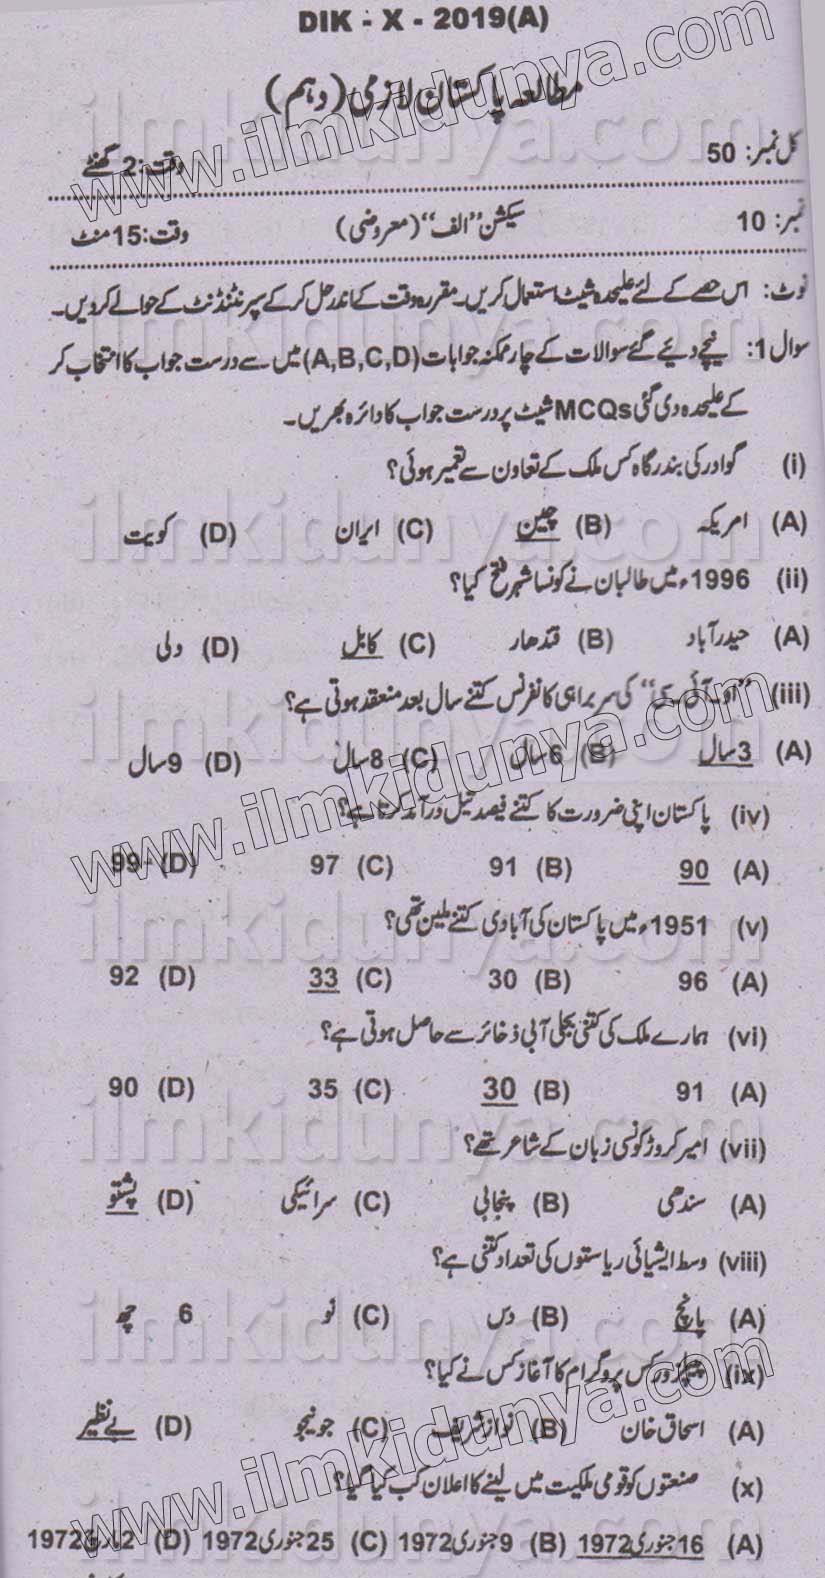 DIK - X - 2019(A)
مطالعہ پاکستان لازمی (دہم)
کل نمبر: 50 وقت: 2 گھنٹے
نمبر: 10 سیکشن "الف" (معروضی) وقت: 15 منٹ
نوٹ: اس حصے کے لئے علیحدہ شیٹ استعمال کریں۔ مقررہ وقت کے اندر حل کر کے سپرنٹنڈنٹ کے حوالے کر دیں۔
سوال 1: نیچے دیئے گئے سوالات کے چار ممکنہ جوابات (A,B,C,D) میں سے درست جواب کا انتخاب کر
کے علیحدہ دی گئی MCQs شیٹ پر درست جواب کا دائرہ بھریں۔
(i) گوادر کی بندرگاہ کس ملک کے تعاون سے تعمیر ہوئی؟
(A) امریکہ (B) چین (C) ایران (D) کویت
(ii) 1996ء میں طالبان نے کونسا شہر فتح کیا؟
(A) حیدرآباد (B) قندھار (C) کابل (D) دلی
(iii) "او۔آئی۔سی" کی سربراہی کانفرنس کتنے سال بعد منعقد ہوتی ہے؟
(A) 3 سال (B) 6 سال (C) 8 سال (D) 9 سال
(iv) پاکستان اپنی ضرورت کا کتنے فیصد تیل درآمد کرتا ہے؟
(A) 90 (B) 91 (C) 97 (D) 99
(v) 1951ء میں پاکستان کی آبادی کتنے ملین تھی؟
(A) 96 (B) 30 (C) 33 (D) 92
(vi) ہمارے ملک کی کتنی بجلی آبی ذخائر سے حاصل ہوتی ہے؟
(A) 91 (B) 30 (C) 35 (D) 90
(vii) امیر کروڑ کونسی زبان کے شاعر تھے؟
(A) سندھی (B) پنجابی (C) سرائیکی (D) پشتو
(viii) وسط ایشیائی ریاستوں کی تعداد کتنی ہے؟
(A) پانچ (B) دس (C) نو 6 چھ
(ix) پیپلز ورکس پروگرام کا آغاز کس نے کیا؟
(A) اسحاق خان (B) نواز شریف (C) جونیجو (D) بے نظیر
(x) صنعتوں کو قومی ملکیت میں لینے کا اعلان کب کیا گیا؟
(A) 16 جنوری 1972 (B) 9 جنوری 1972 (C) 25 جنوری 1972 (D) 2 مارچ 1972
www.ilmkidunya.com
www.ilmkidunya.com
www.ilmkidunya.com
ilmkidunya.com